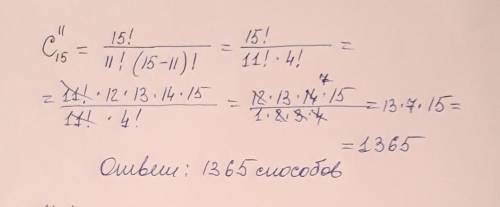 C₁₅¹¹ = 15! / 11! (15-11)! = 15! / 11! · 4! =
= 11! · 12 · 13 · 14 · 15 / 11! · 4! = 12 · 13 · 14 7 · 15 / 1 · 2 · 3 · 4 = 13 · 7 · 15 =
= 1365
Ответ: 1365 способов